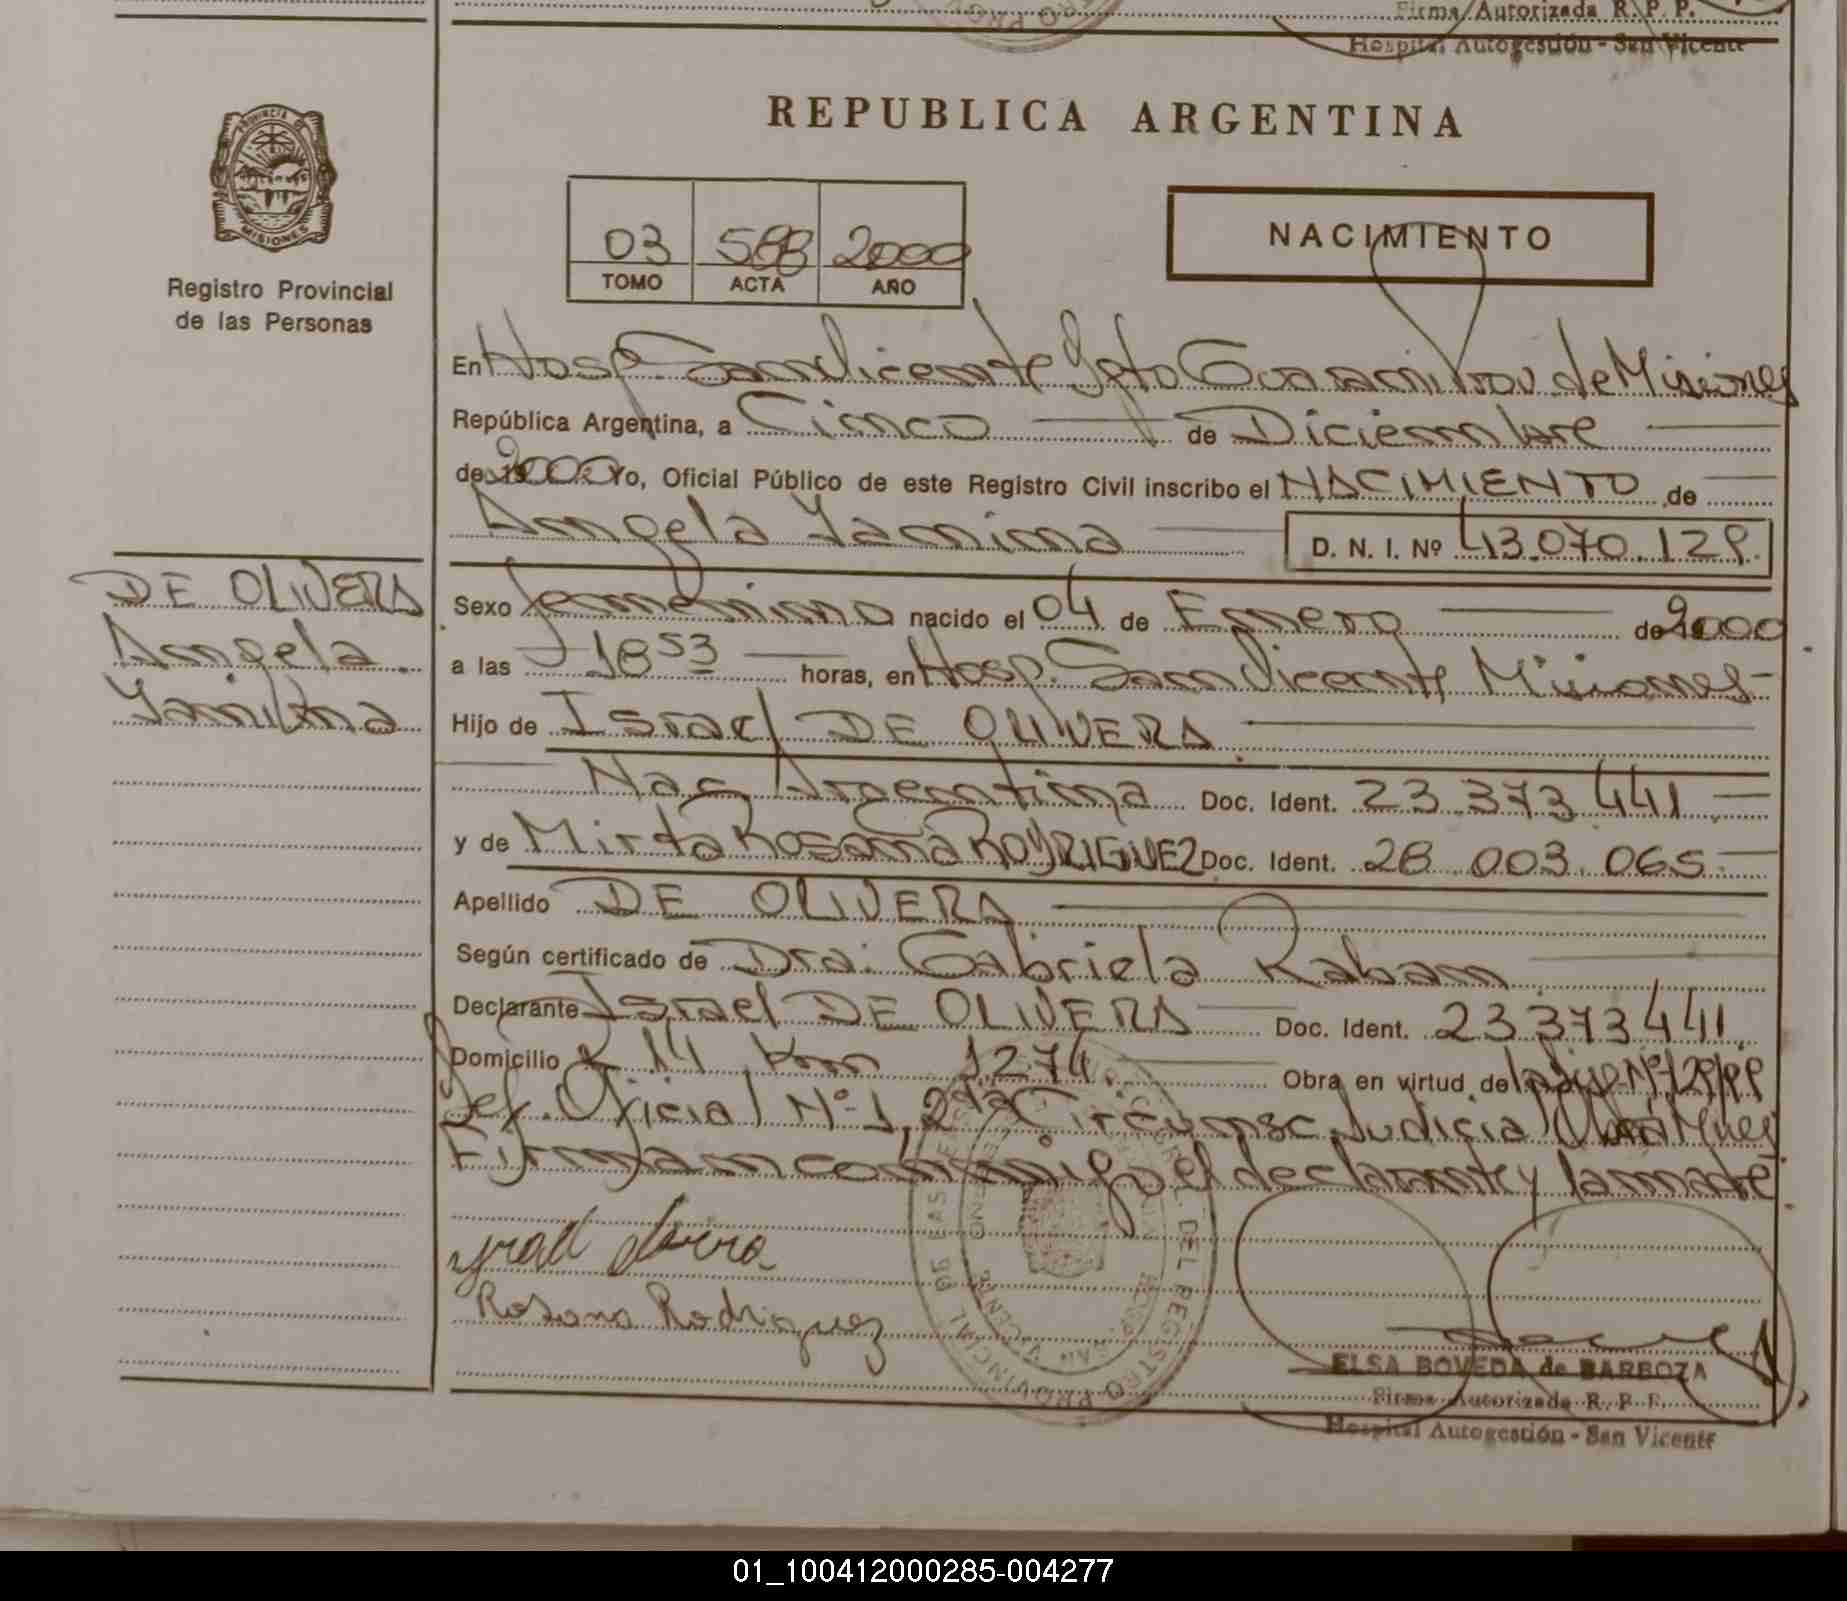 Firma Autorizada R. P. P.
Hospital Autogestión - San Vicente
REPUBLICA ARGENTINA
PROVINCIA DE
MISIONES
Registro Provincial
de las Personas
03 588 2000
TOMO ACTA AÑO
NACIMIENTO
En Hosp San Vicente Dpto Guarani Prov. de Misiones
República Argentina, a Cinco de Diciembre
de 2000 Yo, Oficial Público de este Registro Civil inscribo el NACIMIENTO de
Angela Yanina D. N. I. Nº 43.070.129.
DE OLIVERA
Angela
Yanina
Sexo femenino nacido el 04 de Enero de 2000
a las 18 53 horas, en Hosp. San Vicente Misiones-
Hijo de Israel DE OLIVERA
Nac Argentina Doc. Ident. 23 373 441
y de Mirta Rosana RODRIGUEZ Doc. Ident. 28.003.065
Apellido DE OLIVERA
Según certificado de Dra. Gabriela Raban
Declarante Israel DE OLIVERA Doc. Ident. 23373441
Domicilio R 14 Km 1274. Obra en virtud de Nº 129/99
Def. Oficial Nº 1, 2da Circunsc. Judicial Oberá Mnes
Firman conmigo el declarante y la madre.
Rosana Rodriguez
ELSA BOVEDA de BARBOZA
Firma Autorizada R. P. P.
Hospital Autogestión - San Vicente
REGISTRO PROVINCIAL DE LAS
01_100412000285-004277